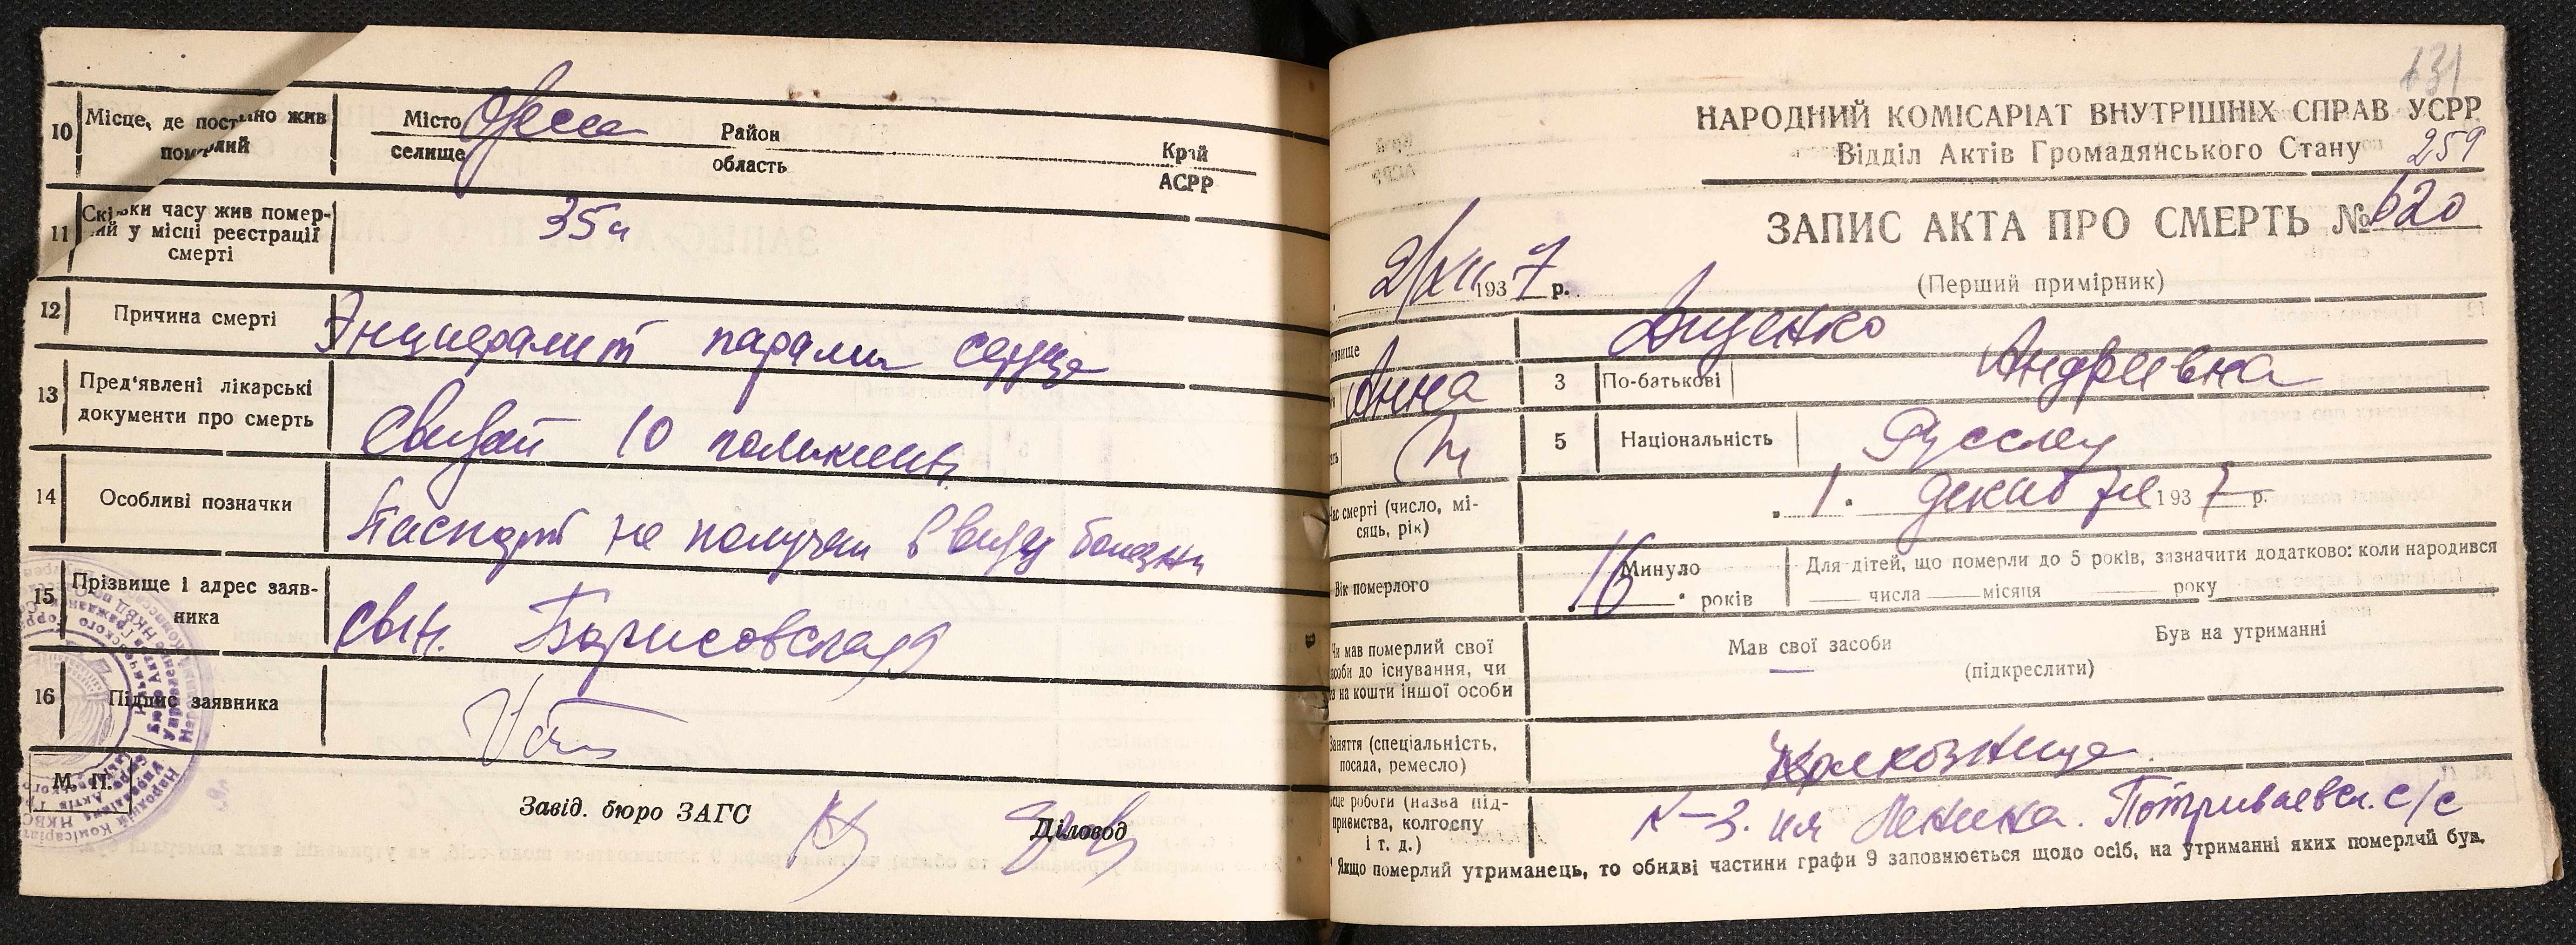 10 Місце, де постійно жив померлий
Місто селище Одесса Район область Край АСРР
11 Скільки часу жив померлий у місці реєстрації смерті
35 л
12 Причина смерті
Энцефалит парали сердца
13 Пред'явлені лікарські документи про смерть
Свидет 10 поликлин
14 Особливі позначки
Паспорт не получен ввиду болезни
15 Прізвище і адрес заявника
Борисовская 9
16 Підпис заявника
М. П.
Завід. бюро ЗАГС
Діловод
131
НАРОДНИЙ КОМІСАРІАТ ВНУТРІШНІХ СПРАВ УСРР
Відділ Актів Громадянського Стану 259
ЗАПИС АКТА ПРО СМЕРТЬ № 620
2/XII 1937 р.
(Перший примірник)
Анна
3 По-батькові Андреевна
5 Національність Русская
Час смерті (число, місяць, рік)
1. декабря 1937 р.
Вік померлого
Минуло 16 років
Для дітей, що померли до 5 років, зазначити додатково: коли народився
числа місяця року
Чи мав померлий свої засоби до існування, чи був на кошти іншої особи
Мав свої засоби Був на утриманні
(підкреслити)
Заняття (спеціальність, посада, ремесло)
Колхозница
Місце роботи (назва підприємства, колгоспу і т. д.)
К-з. им Ленина. Потриваевск. с/с
* Якщо померлий утриманець, то обидві частини графи 9 заповнюється щодо осіб, на утриманні яких померлий був.